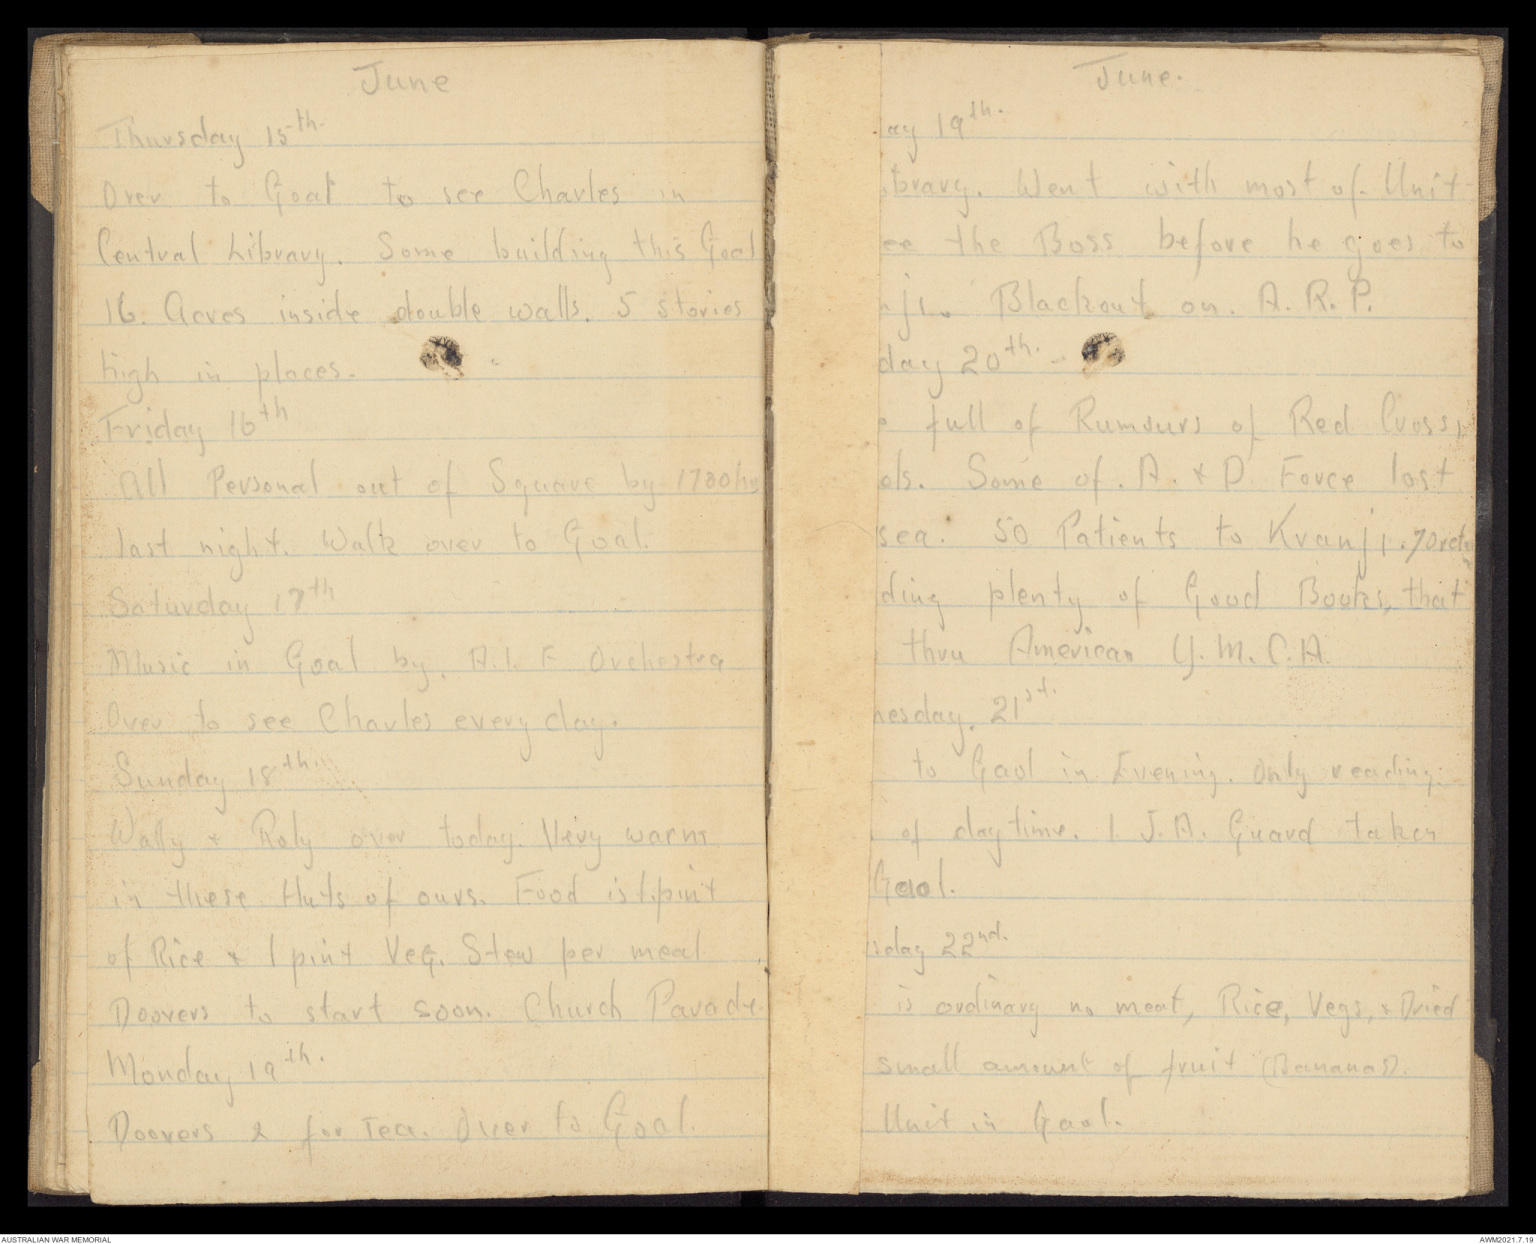 June
Thursday 15th.
Over to Goal to see Charles in
Central Library. Some building this Goal
16. Acres inside double walls. 5 stories
high in places.
Friday 16th
All Personal out of Square by 1700hrs
last night. Walk over to Goal.
Saturday 17th
Music in Goal by. A.I.F Orchestra
Over to see Charles every day.
Sunday 18th.
Wally & Roly over today. Very warm
in these Huts of ours. Food is 1.pint
of Rice & 1 pint Veg. Stew per meal
Doovers to start soon. Church Parade.
Monday 19th.
Doovers 2 for Tea. Over to Goal.
June.
ay 19th.
brary. Went with most of Unit
ee the Boss before he goes to
nji. Blackout on. A.R.P.
day 20th.
full of Rumours of Red Cross,
ols. Some of. A. & D Force lost
sea. 50 Patients to Kranji. 70
ding plenty of Good Books, that
thru American Y.M.C.A.
nesday. 21st.
to Gaol in Evening. Only reading
of daytime. I.J.A. Guard taken
Gaol.
sday 22nd.
is ordinary no meat, Rice, Vegs, & Dried
small amount of fruit (Bananas).
Unit in Gaol.
AUSTRALIAN WAR MEMORIAL
AWM2021.7.19